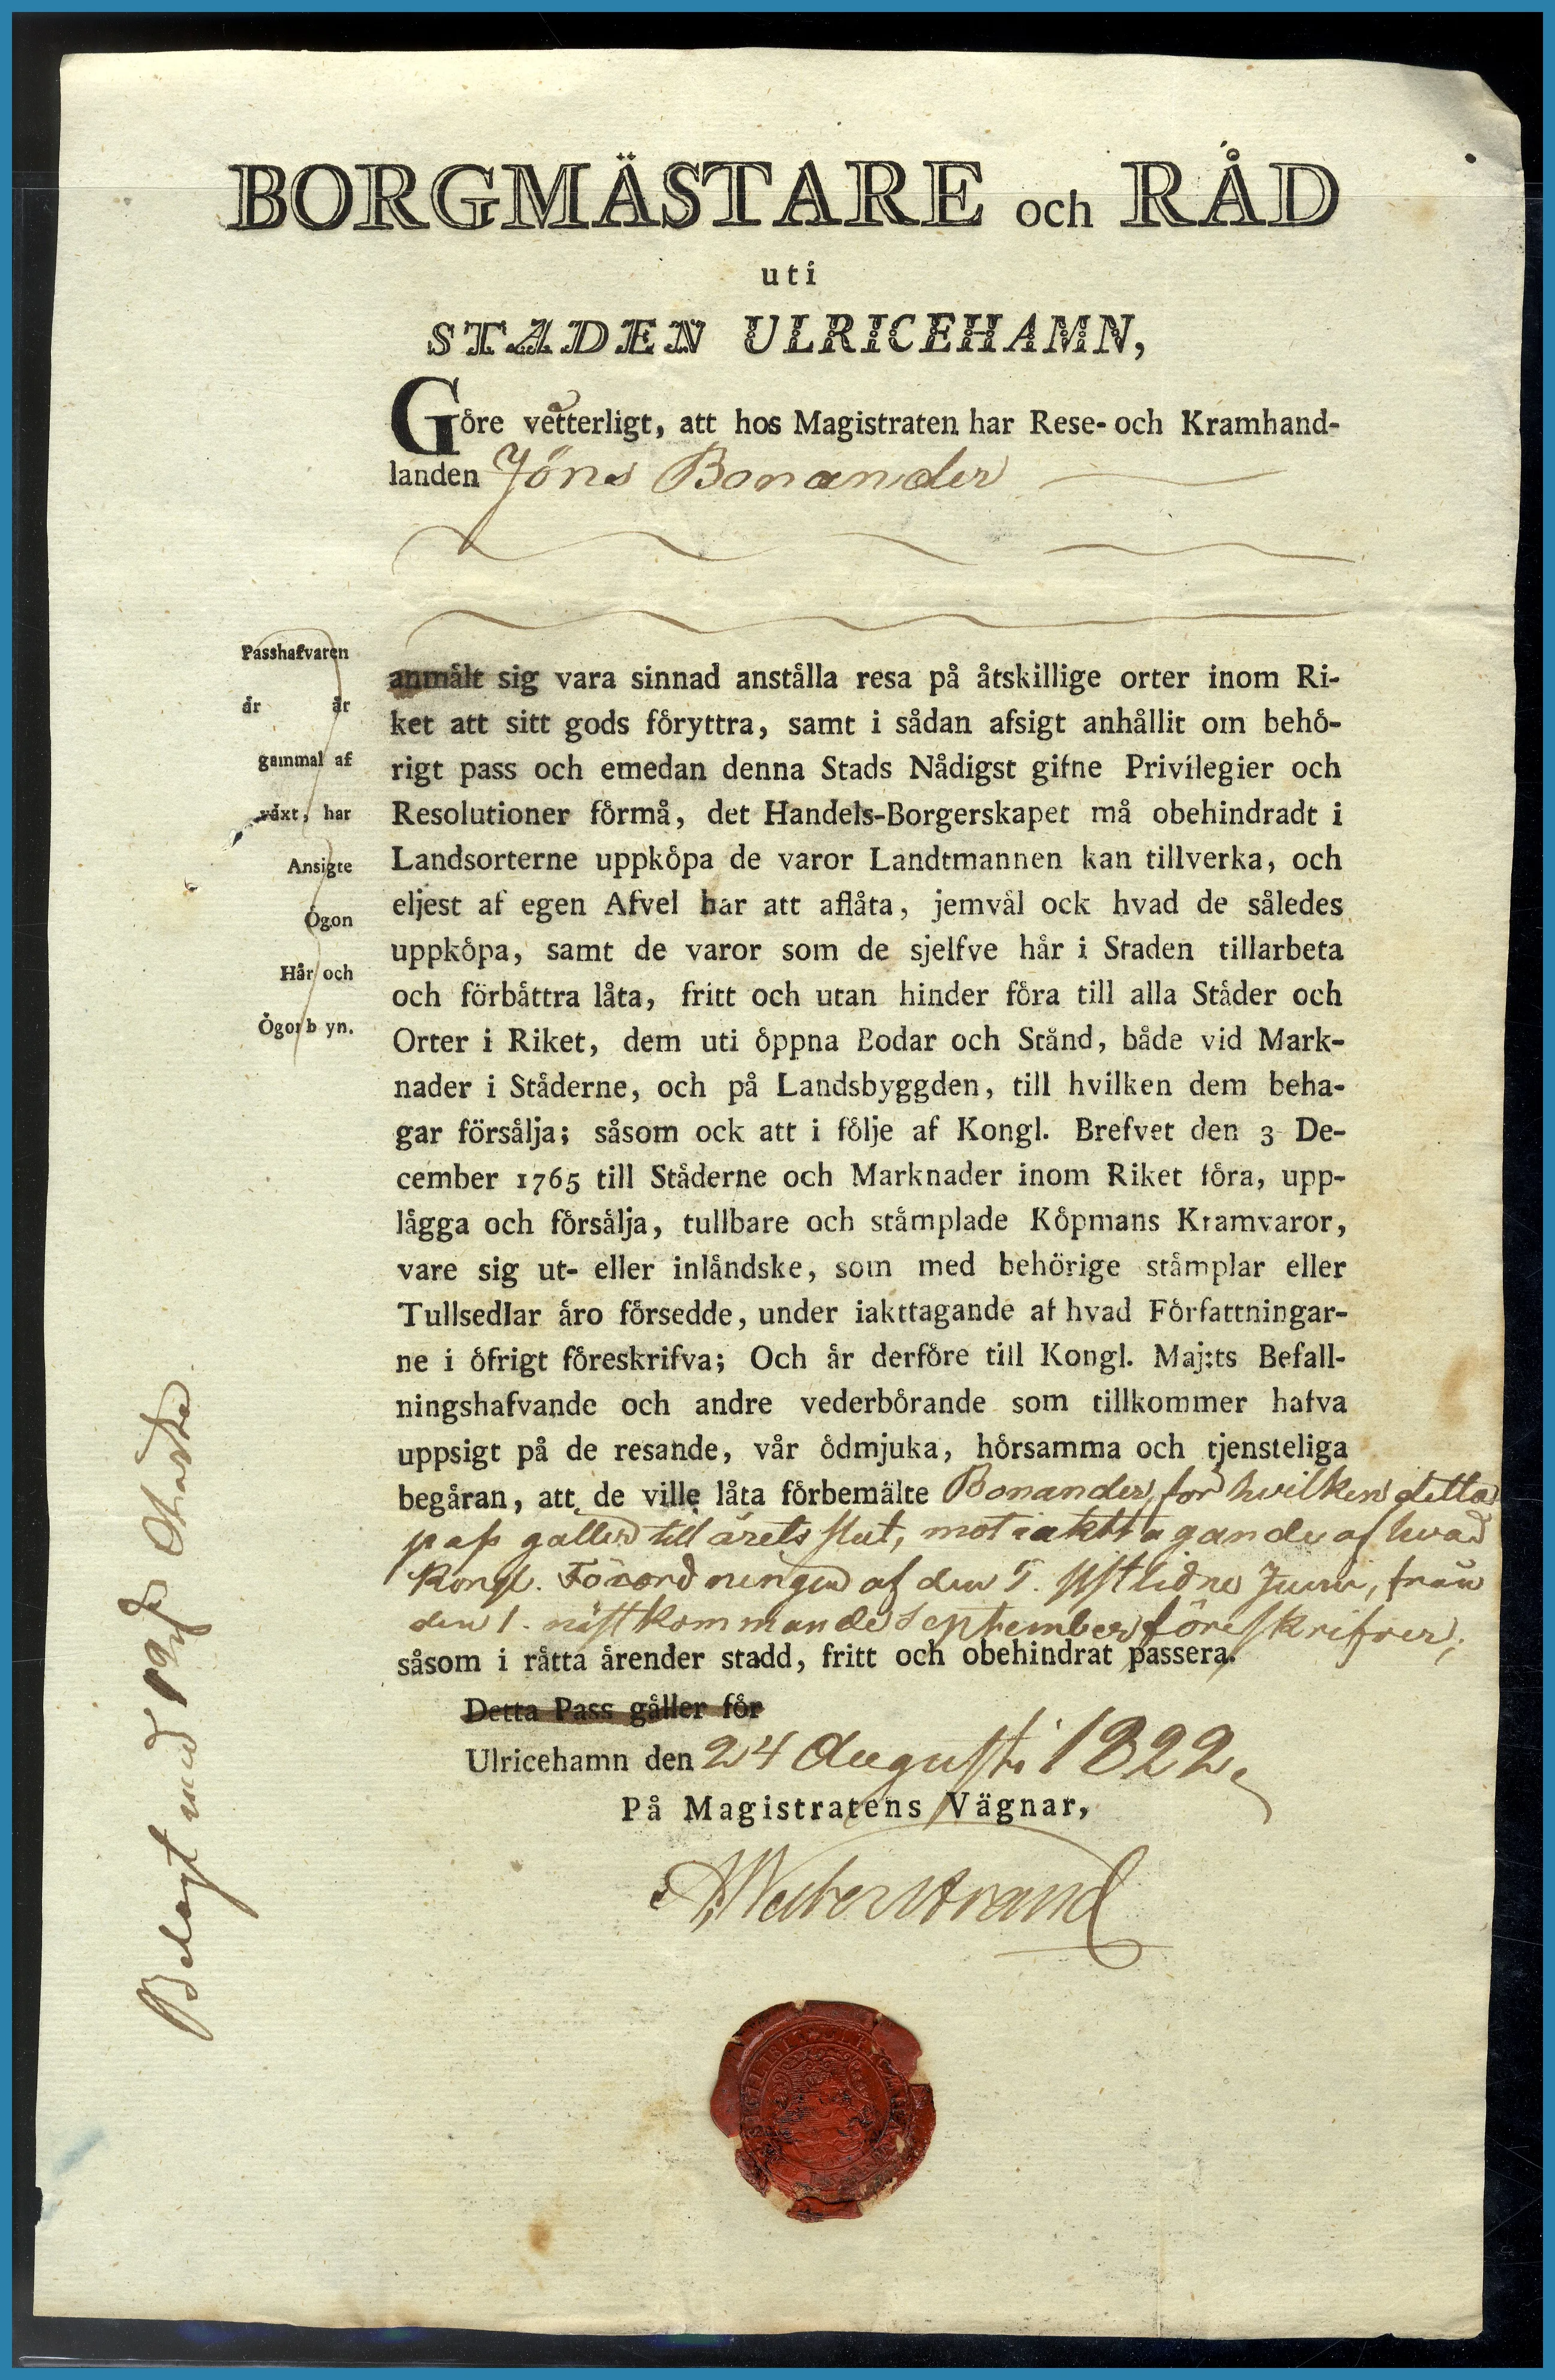 BORGMÄSTARE och RÅD
uti
STADEN ULRICEHAMN,
Göre vetterligt, att hos Magistraten har Rese- och Kramhand-
landen Jöns Bonander
Passhafvaren
år år
gammal af
våxt, har
Ansigte
Ögon
Hår och
Ögonb yn.
anmålt sig vara sinnad anstålla resa på åtskillige orter inom Ri-
ket att sitt gods föryttra, samt i sådan afsigt anhållit om behö-
rigt pass och emedan denna Stads Nådigst gifne Privilegier och
Resolutioner förmå, det Handels-Borgerskapet må obehindradt i
Landsorterne uppköpa de varor Landtmannen kan tillverka, och
eljest af egen Afvel har att aflåta, jemvål ock hvad de således
uppköpa, samt de varor som de sjelfve hår i Staden tillarbeta
och förbåttra låta, fritt och utan hinder föra till alla Ståder och
Orter i Riket, dem uti öppna Bodar och Stånd, både vid Mark-
nader i Ståderne, och på Landsbyggden, till hvilken dem beha-
gar försålja; såsom ock att i följe af Kongl. Brefvet den 3 De-
cember 1765 till Ståderne och Marknader inom Riket föra, upp-
lågga och försålja, tullbare och ståmplade Köpmans Kramvaror,
vare sig ut- eller inlåndske, som med behörige ståmplar eller
Tullsedlar åro försedde, under iakttagande af hvad Författningar-
ne i öfrigt föreskrifva; Och år derföre till Kongl. Maj:ts Befall-
ningshafvande och andre vederbörande som tillkommer hafva
uppsigt på de resande, vår ödmjuka, hörsamma och tjensteliga
begåran, att de ville låta förbemälte Bonander, for hvilken detta
pass galler till årets slut, mot iakttagande af hvad
Kongl. Förordningen af den 5. sistlidne Junii, från
den 1. nästkommande September föreskrifver;
såsom i råtta årender stadd, fritt och obehindrat passera.
Detta Pass gåller för
Ulricehamn den 24 Augusti 1822.
På Magistratens Vägnar,
Westerstrand
Belagt med